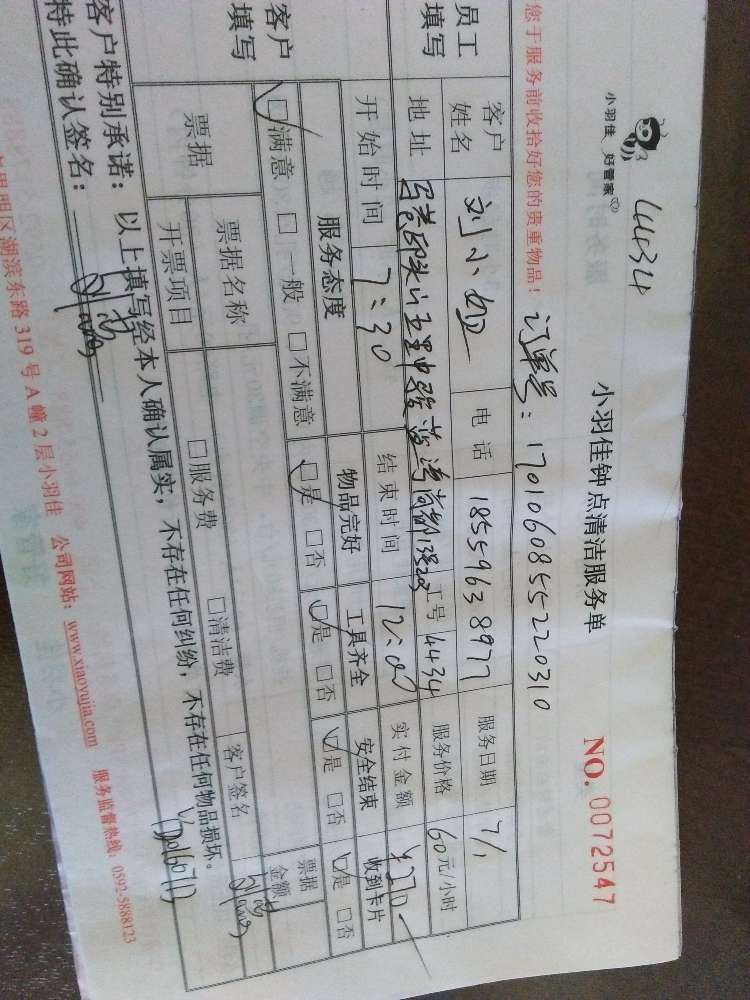 4434
小羽佳 好管家
小羽佳钟点清洁服务单
NO. 0072547
您于服务前收拾好您的贵重物品！
订单号：1701060855220310
员工填写
客户姓名 刘小姐 电话 18559638977 服务日期 7/1
地址 工号 4434 服务价格 60元/小时
开始时间 7:30 结束时间 12:00 实付金额 ¥270
客户填写
服务态度 物品完好 工具齐全 安全结束 收到卡片
☑满意 □一般 □不满意 ☑是 □否 ☑是 □否 ☑是 □否 ☑是 □否
票据 票据名称 客户签名 票据金额
开票项目 □服务费 □清洁费
客户特别承诺：以上填写经本人确认属实，不存在任何纠纷，不存在任何物品损坏。
特此确认签名：
明区湖滨东路 319 号 A 幢 2 层小羽佳 公司网站：www.xiaoyujia.com 服务监督热线：0592-5888123